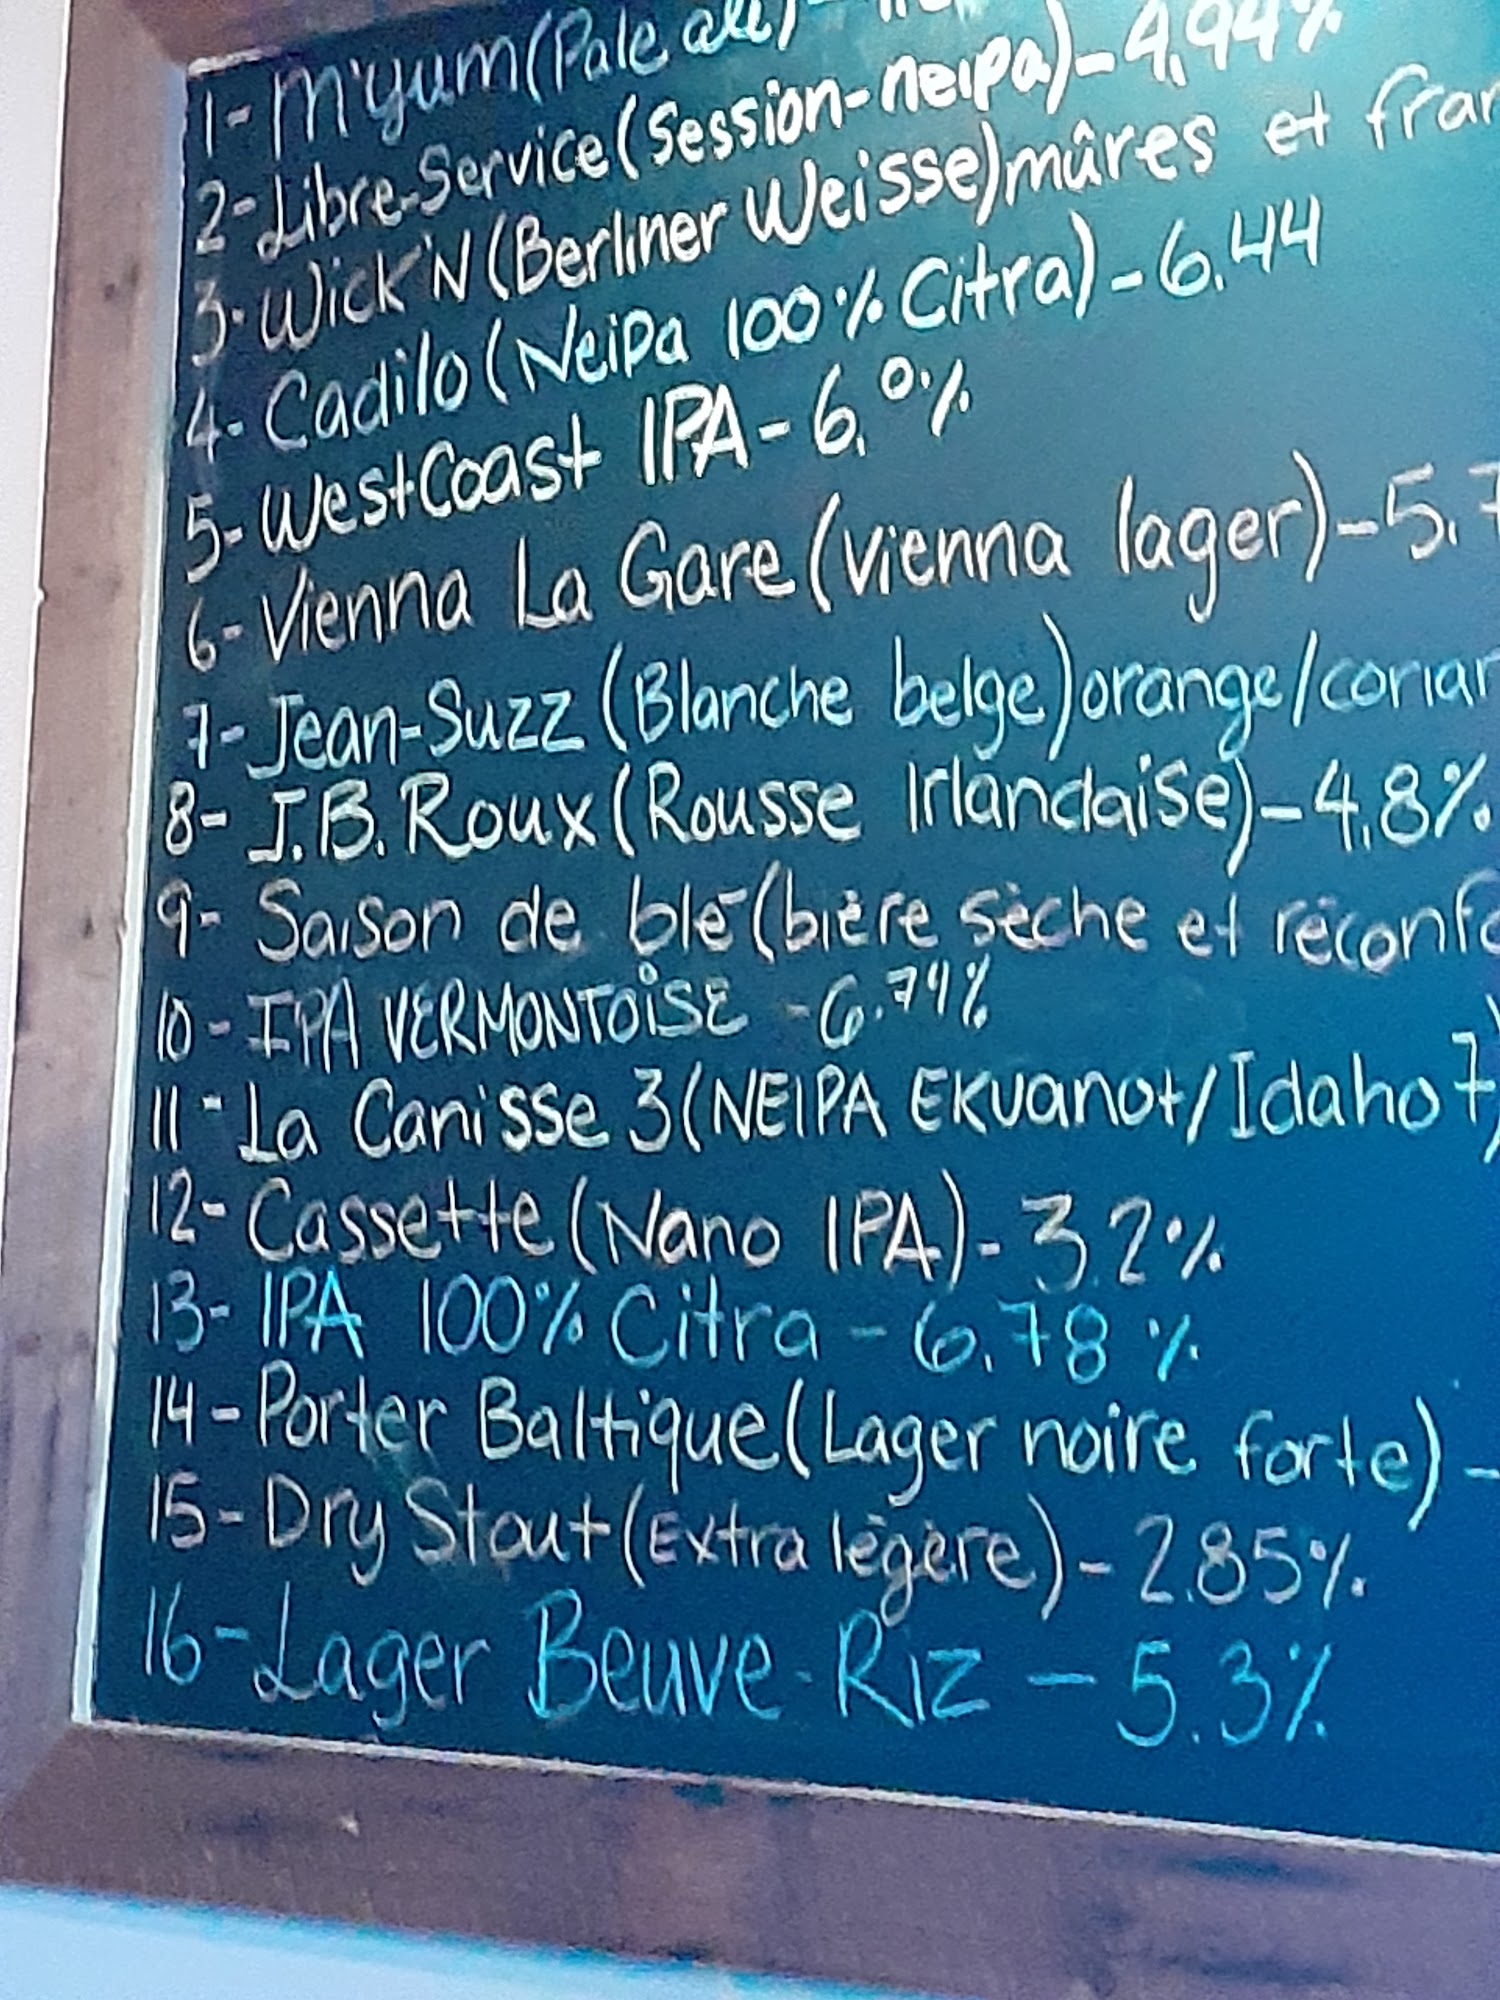 1- M'yum (Pale ale) -
2- Libre-Service (Session-neipa) - 4.94%
3- Wick'N (Berliner Weisse) mûres et
4- Cadilo (Neipa 100% Citra) - 6.44
5- WestCoast IPA - 6.0%
6- Vienna La Gare (vienna lager) - 5.7
7- Jean-Suzz (Blanche belge) orange/corian
8- J.B. Roux (Rousse Irlandaise) - 4.8%
9- Saison de blé (bière sèche et réconfo
10 - IPA VERMONTOiSE - 6.74%
11 - La Canisse 3 (NEIPA EKUanot/Idaho 7)
12- Cassette (Nano IPA) - 3.2%
13- IPA 100% Citra - 6.78%
14 - Porter Baltique (Lager noire forte) -
15- Dry Stout (Extra légère) - 2.85%
16 - Lager Beuve-Riz - 5.3%